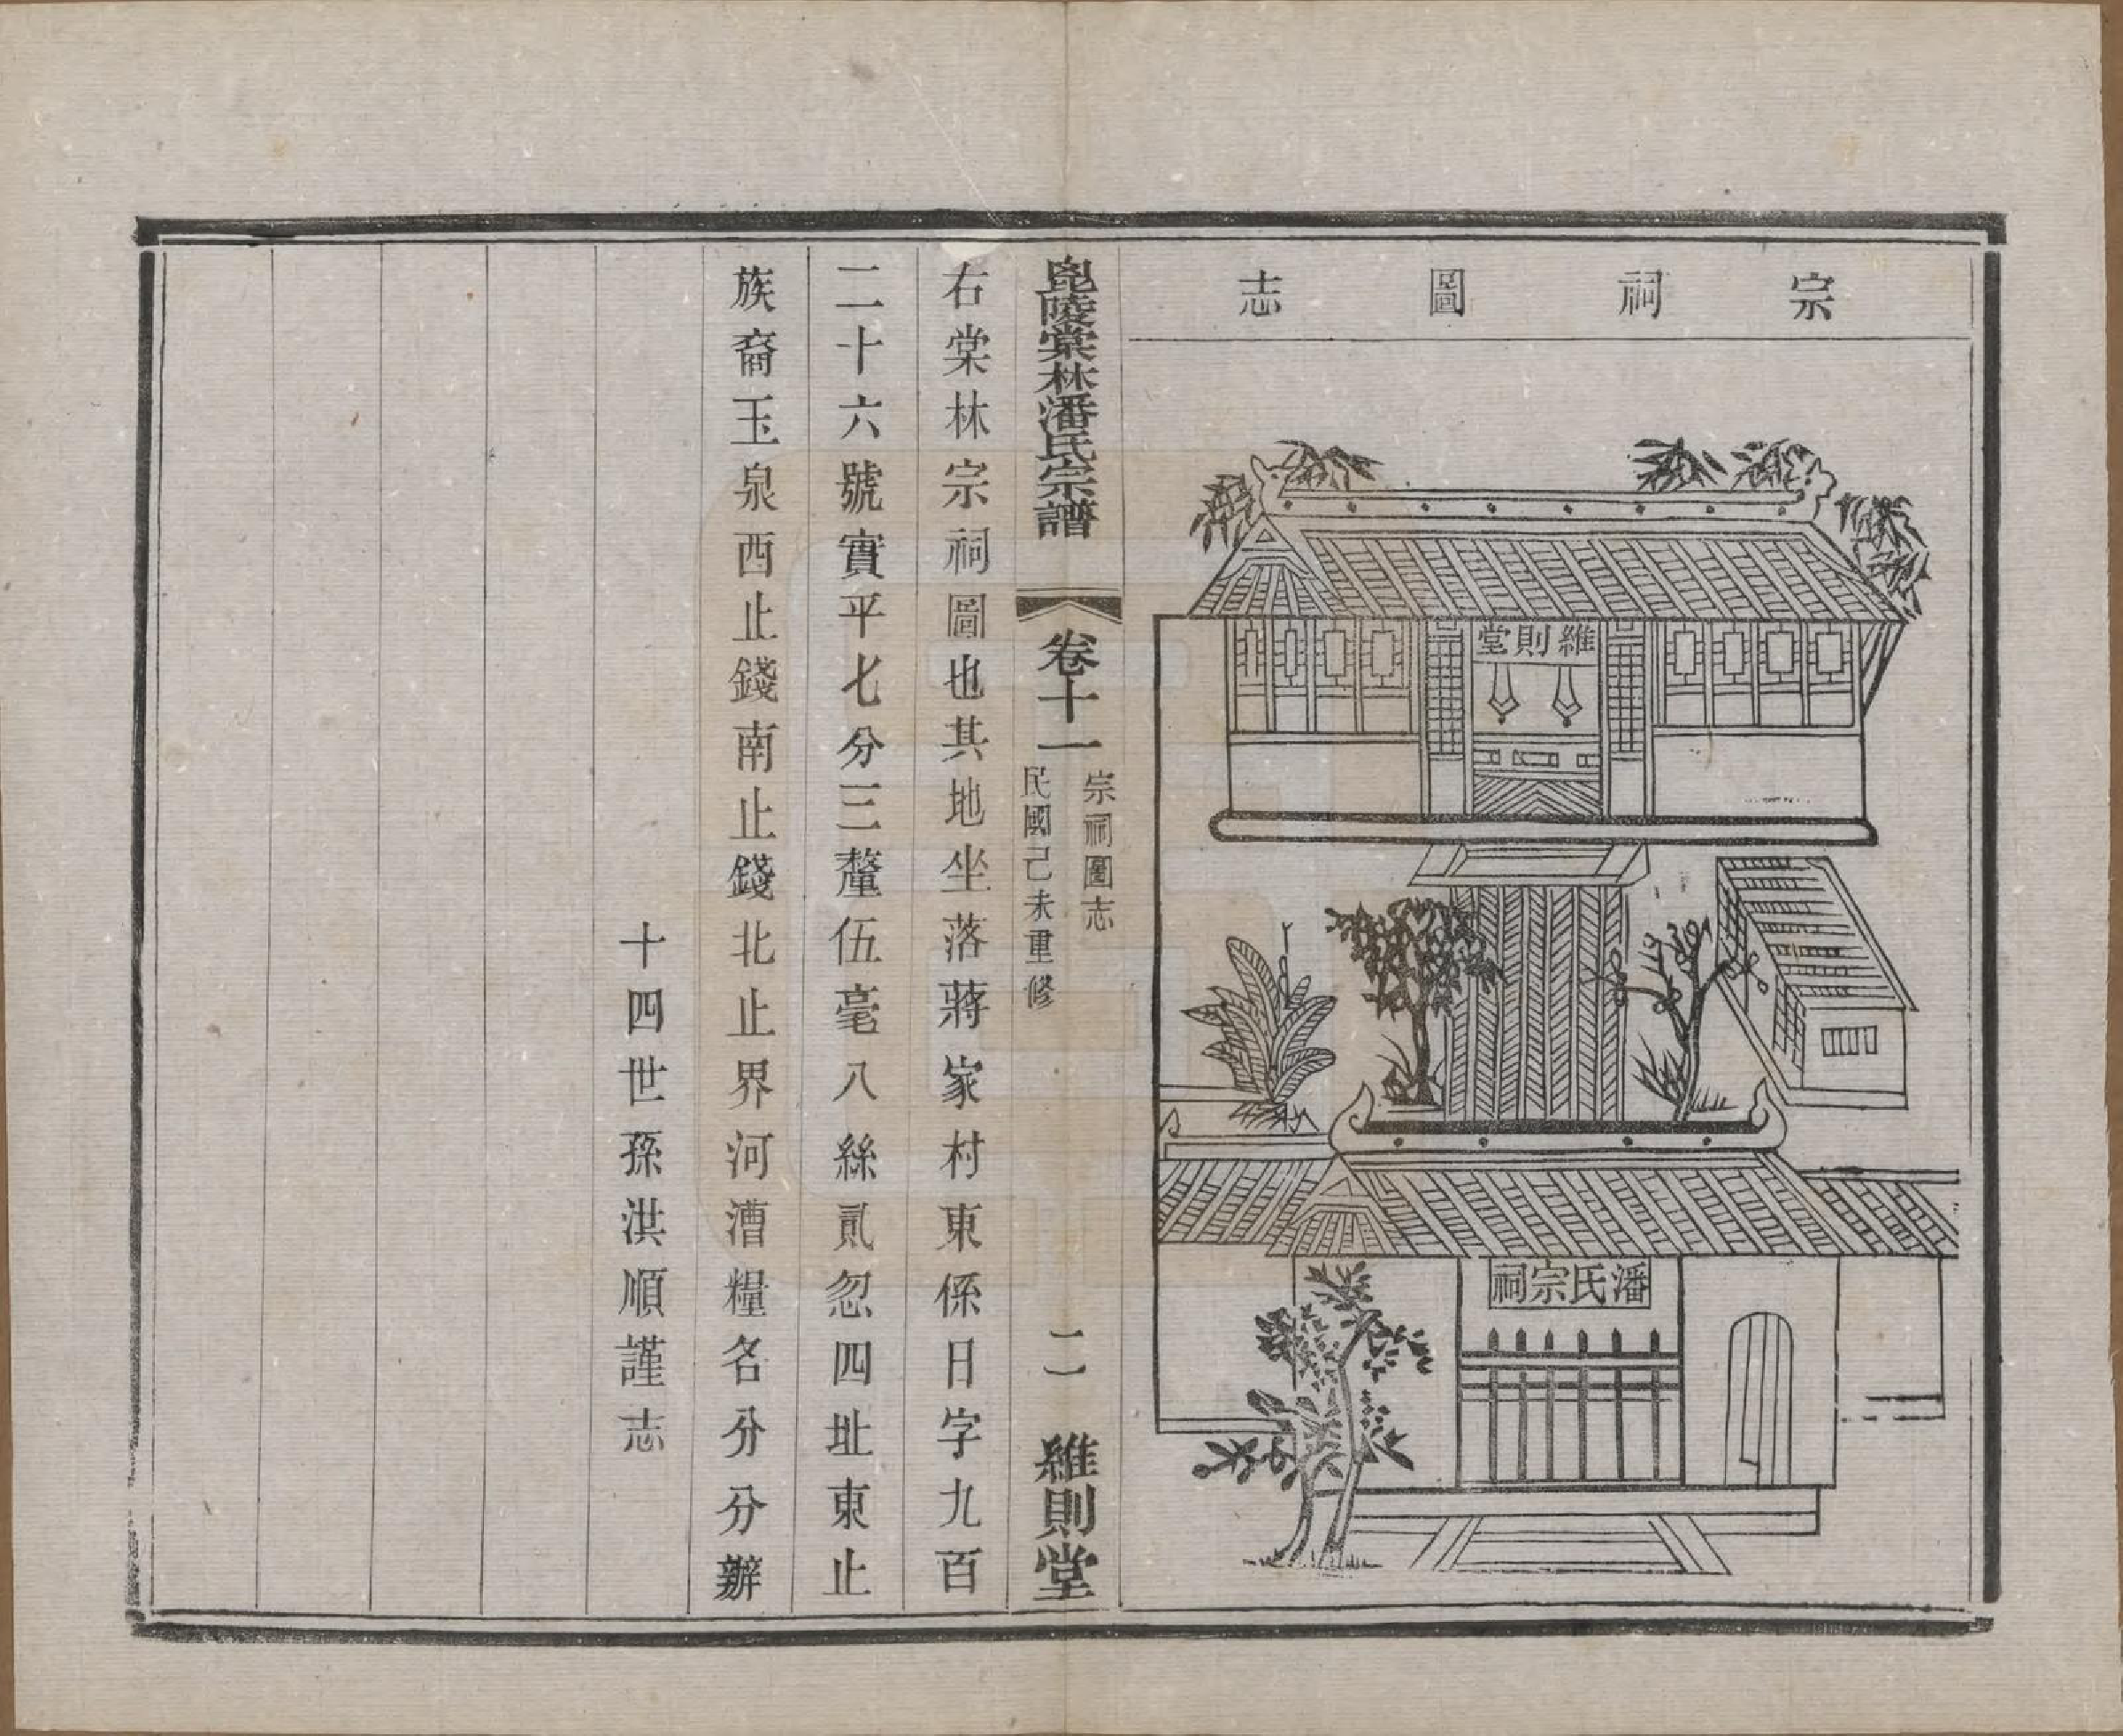 宗祠圖志
維則堂
潘氏宗祠
毘陵棠林潘氏宗譜
卷十一
宗祠圖志
民國己未重修
二
維則堂
右棠林宗祠圖也其地坐落蔣家村東係日字九百
二十六號實平七分三釐伍毫八絲貳忽四址東止
族裔玉泉西止錢南止錢北止界河漕糧名分分辦
十四世孫洪順謹志